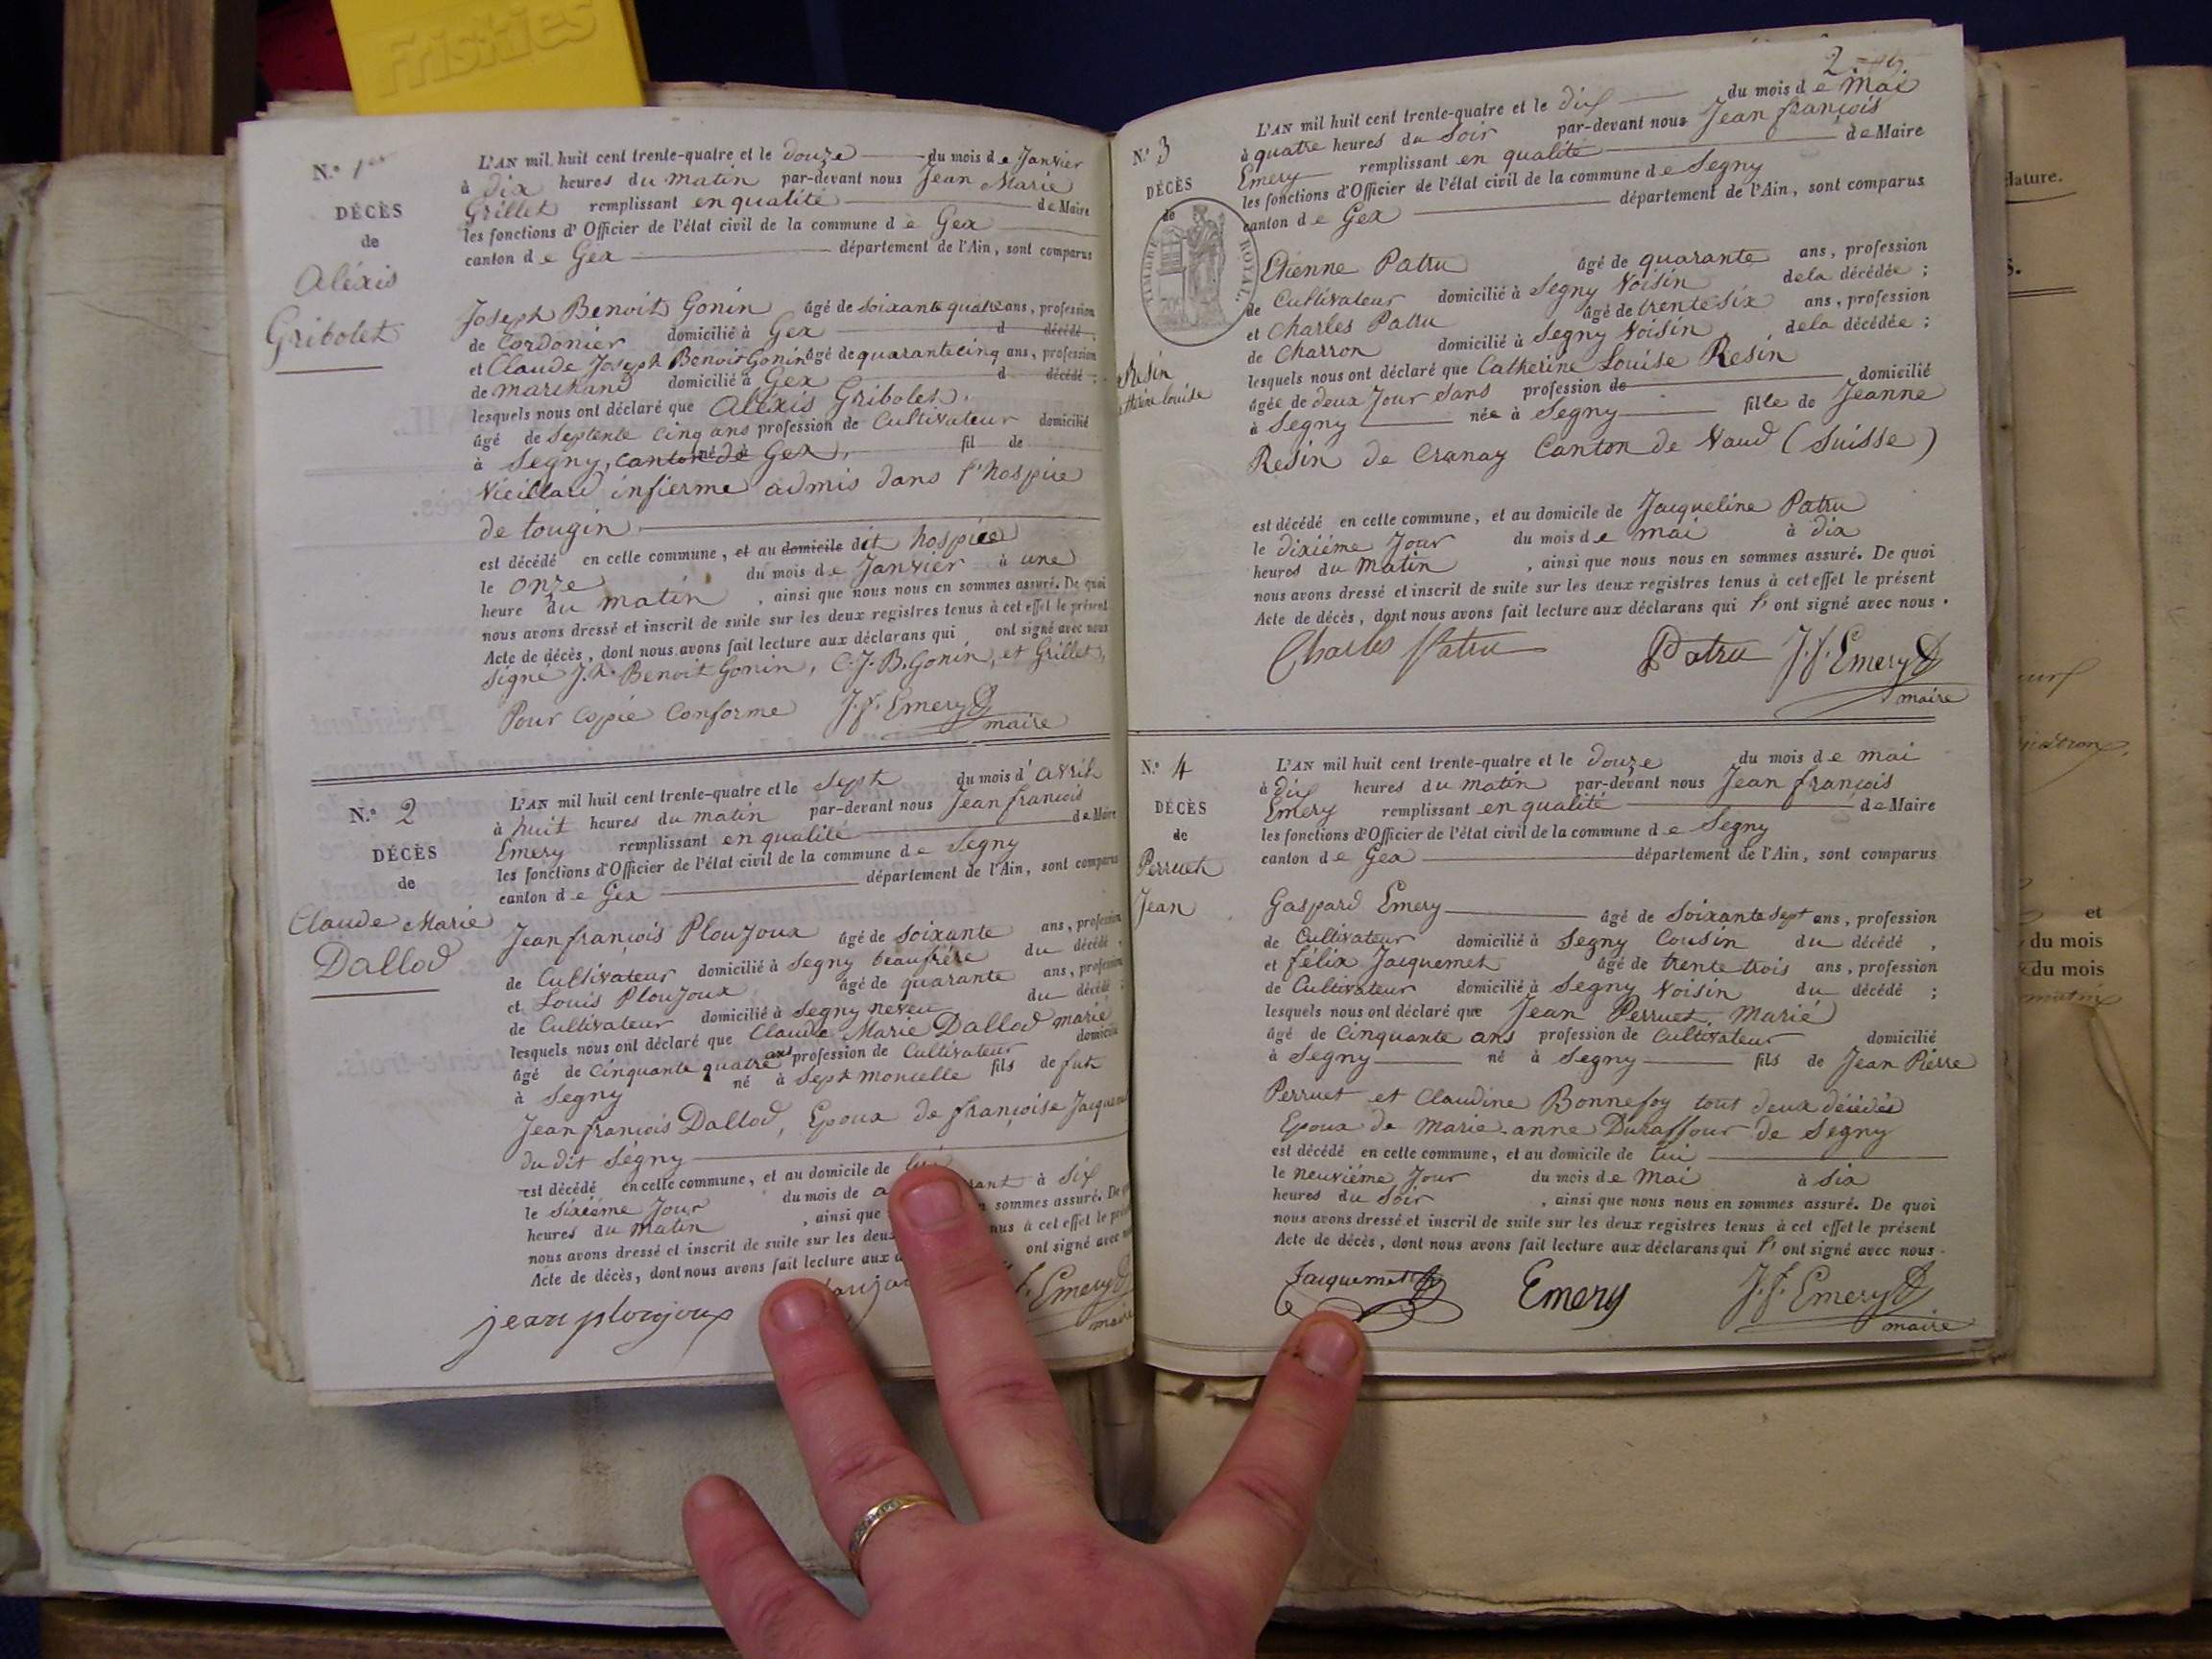 Friskies
N.º 1er
DÉCÈS
de
Aléxis
Gribolet
L'AN mil huit cent trente-quatre et le douze du mois de Janvier
à dix heures du matin par-devant nous Jean Marie
Grillet remplissant en qualité de Maire
les fonctions d'Officier de l'état civil de la commune de Gex
canton de Gex département de l'Ain, sont comparus
Joseph Benoit Gonin âgé de soixante quatre ans, profession
de Cordonier domicilié à Gex d décédé ;
et Claude Joseph Benoit Gonin âgé de quarante cinq ans, profession
de marchand domicilié à Gex d décédé ;
lesquels nous ont déclaré que Aléxis Gribolet,
âgé de septente cinq ans profession de Cultivateur domicilié
à Segny, canton de Gex, né à fil de
Vieillard infierme admis dans l'hospice
de tougin
est décédé en cette commune, et au domicile dit hospice
le onze du mois de Janvier à une
heure du matin, ainsi que nous nous en sommes assuré. De quoi
nous avons dressé et inscrit de suite sur les deux registres tenus à cet effet le présent
Acte de décès, dont nous avons fait lecture aux déclarans qui ont signé avec nous
signé J.h Benoit Gonin, C. J. B. Gonin, et Grillet,
Pour Copie Conforme J. f. Emery
maire
N.º 2
DÉCÈS
de
Claude Marie
Dallod
L'AN mil huit cent trente-quatre et le sept du mois d'avril
à huit heures du matin par-devant nous Jean françois
Emery remplissant en qualité de Maire
les fonctions d'Officier de l'état civil de la commune de Segny
canton de Gex département de l'Ain, sont comparus
Jean françois Ploujoux âgé de soixante ans, profession
de Cultivateur domicilié à Segny beaufrére du décédé,
et Louis Ploujoux âgé de quarante ans, profession
de Cultivateur domicilié à Segny neveu du décédé ;
lesquels nous ont déclaré que Claude Marie Dallod marié
âgé de cinquante quatre ans profession de Cultivateur domicilié
à Segny né à Sept moncelle fils de fut
Jean françois Dallod, Epoux de françoise
du dit Segny
est décédé en cette commune, et au domicile de lui
le sixième jour du mois de à six
heures du matin, ainsi que sommes assuré. De
nous avons dressé et inscrit de suite sur les deux à cet effet le
Acte de décès, dont nous avons fait lecture aux ont signé avec
jean ploujoux Emery
maire
2
N.º 3
DÉCÈS
de
TIMBRE ROYAL.
Resin
L'AN mil huit cent trente-quatre et le dix du mois de mai
à quatre heures du soir par-devant nous Jean françois
Emery remplissant en qualité de Maire
les fonctions d'Officier de l'état civil de la commune de Segny
canton de Gex département de l'Ain, sont comparus
Etienne Patru âgé de quarante ans, profession
de Cultivateur domicilié à Segny Voisin dela décédée ;
et Charles Patru âgé de trente six ans, profession
de Charron domicilié à Segny Voisin, dela décédée ;
lesquels nous ont déclaré que Catherine Louise Resin
âgée de deux Jour sans profession de domicilié
à Segny née à Segny fille de Jeanne
Resin de Cranay Canton de Vaud (Suisse)
est décédé en cette commune, et au domicile de Jacqueline Patru
le dixiéme Jour du mois de mai à dix
heures du matin, ainsi que nous nous en sommes assuré. De quoi
nous avons dressé et inscrit de suite sur les deux registres tenus à cet effet le présent
Acte de décès, dont nous avons fait lecture aux déclarans qui l'ont signé avec nous.
Charles Patru Patru J. f. Emery
maire
N.º 4
DÉCÈS
de
Perruet
Jean
L'AN mil huit cent trente-quatre et le douze du mois de mai
à dix heures du matin par-devant nous Jean françois
Emery remplissant en qualité de Maire
les fonctions d'Officier de l'état civil de la commune de Segny
canton de Gex département de l'Ain, sont comparus
Gaspard Emery âgé de soixante sept ans, profession
de Cultivateur domicilié à Segny Cousin du décédé,
et félix Jacquemet âgé de trente trois ans, profession
de Cultivateur domicilié à Segny Voisin du décédé ;
lesquels nous ont déclaré que Jean Perruet, Marié
âgé de Cinquante ans profession de Cultivateur domicilié
à Segny né à Segny fils de Jean Pierre
Perruet et Claudine Bonnefoy tout deux décédés
Epoux de Marie-anne Duraffour de Segny
est décédé en cette commune, et au domicile de lui
le neuviéme Jour du mois de Mai à six
heures du soir, ainsi que nous nous en sommes assuré. De quoi
nous avons dressé et inscrit de suite sur les deux registres tenus à cet effet le présent
Acte de décès, dont nous avons fait lecture aux déclarans qui l'ont signé avec nous.
Jacquemet Emery J. f. Emery
maire
et
du mois
du mois
matin